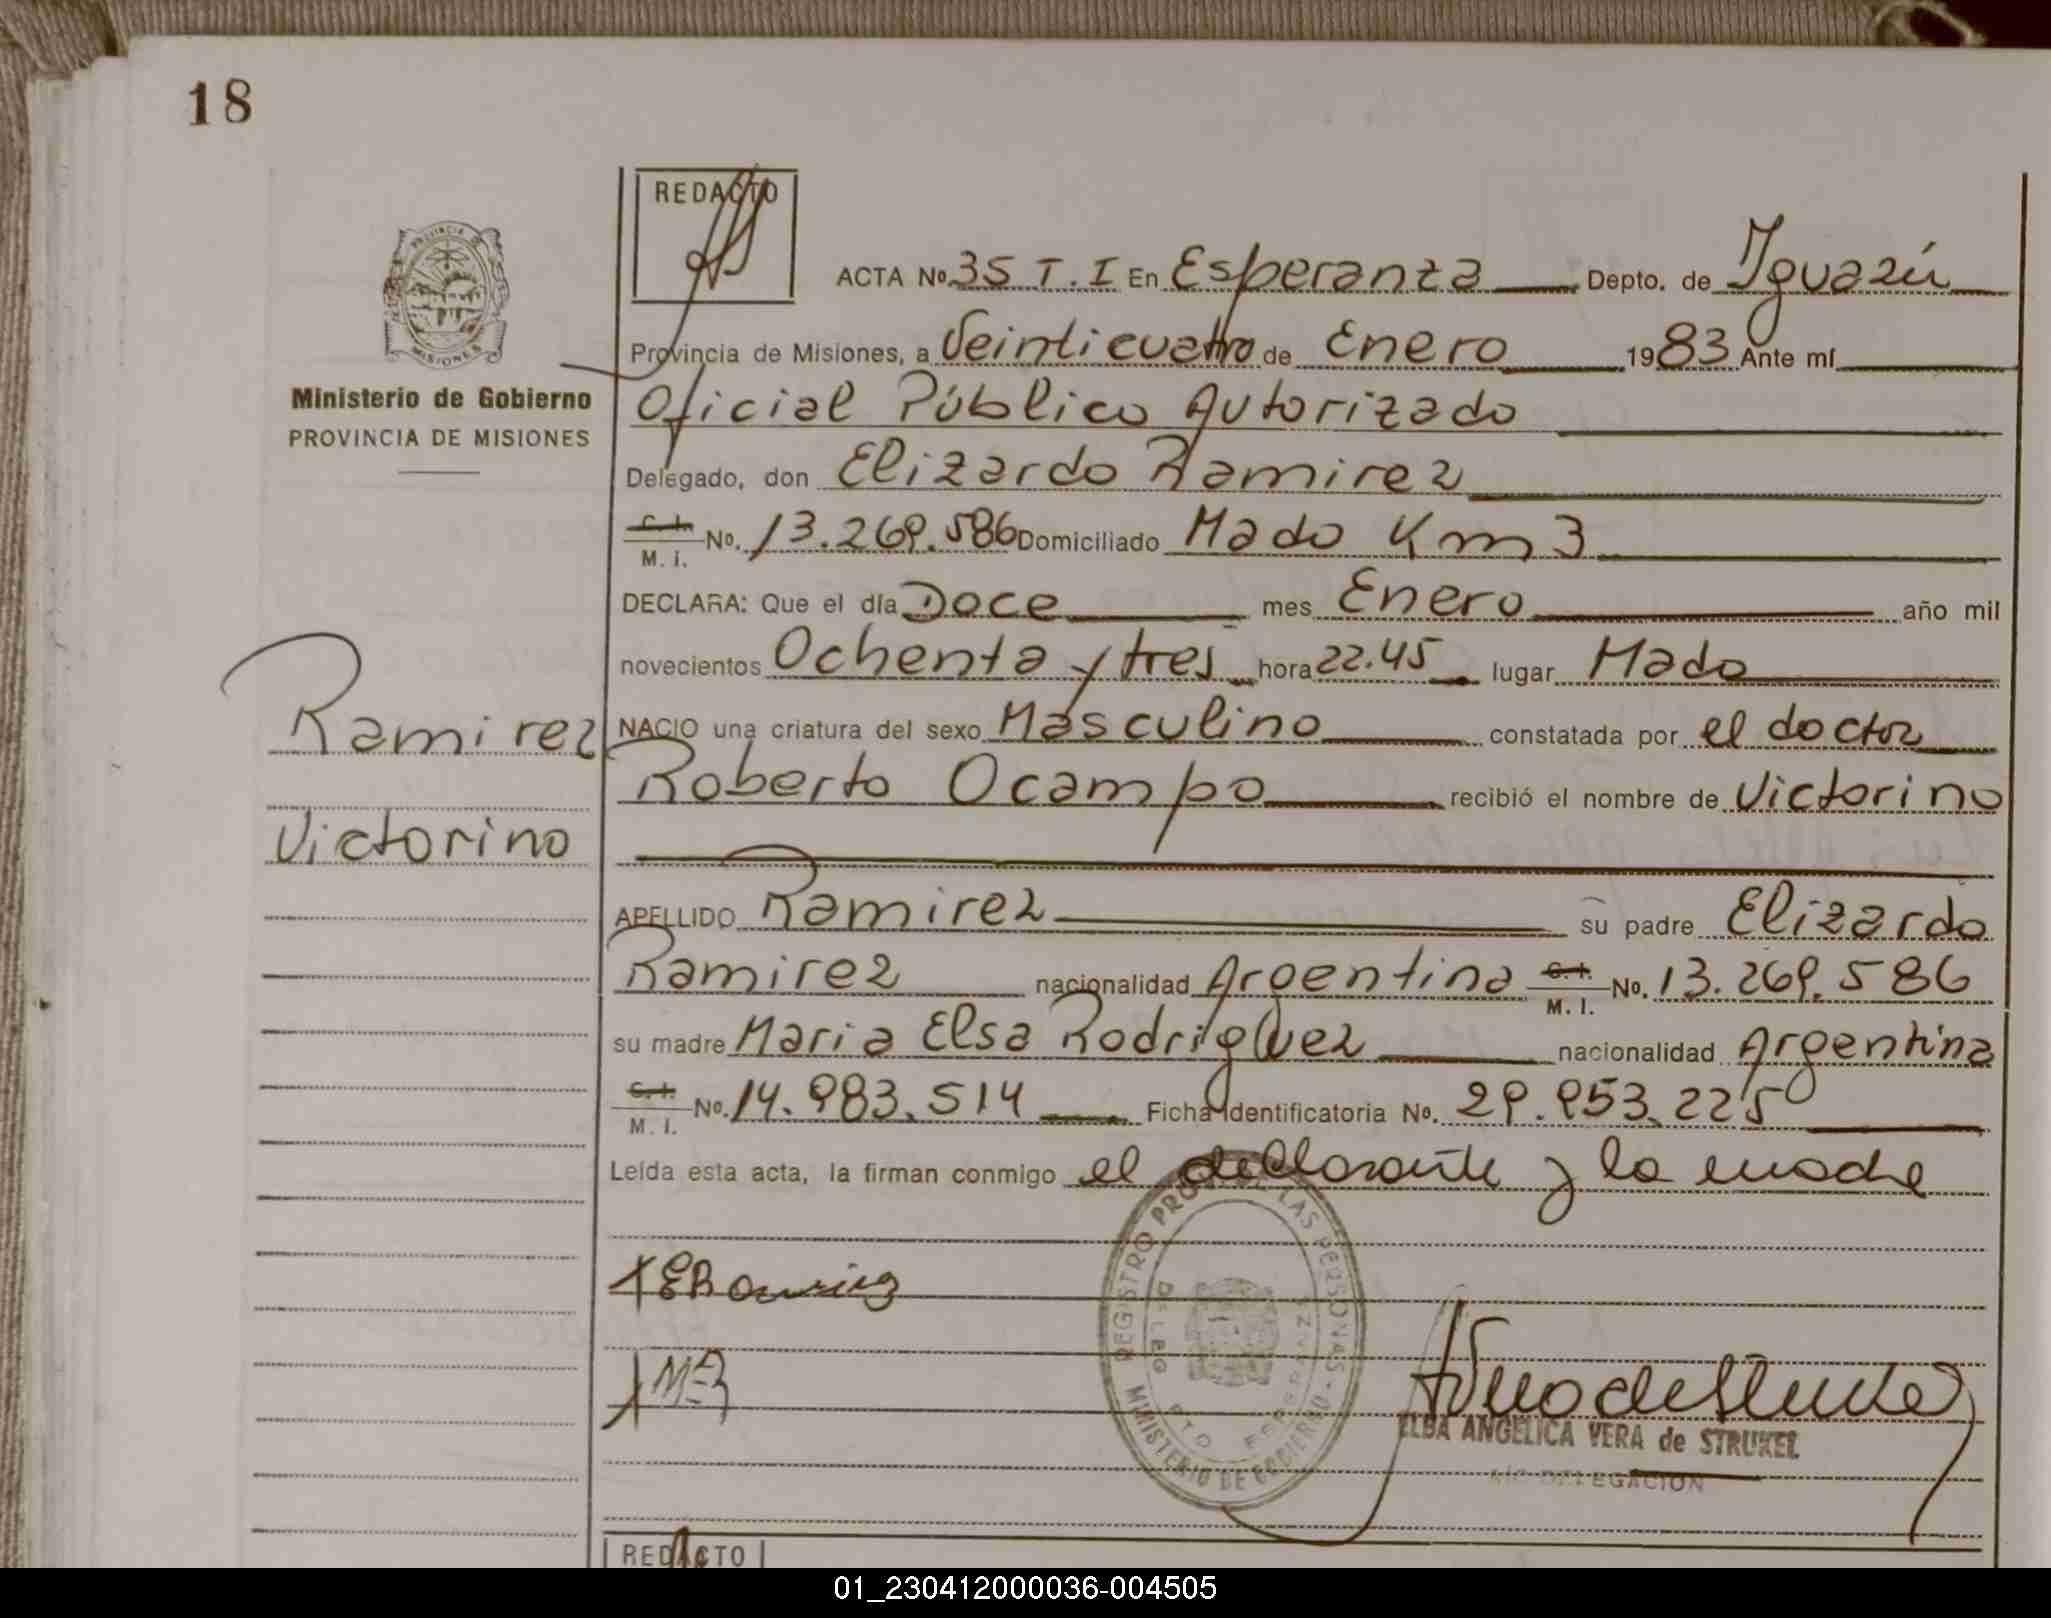 18
REDACTO
ACTA No. 35 T. I En Esperanza Depto. de Iguazú
Provincia de Misiones, a Veinticuatro de Enero 1983 Ante mí
Ministerio de Gobierno
PROVINCIA DE MISIONES
Oficial Público Autorizado
Delegado, don Elizardo Ramirez
C. I. M. I. No. 13.269.586 Domiciliado Mado Km 3
DECLARA: Que el día Doce mes Enero año mil
novecientos Ochenta y tres hora 22.45 lugar Mado
Ramirez
NACIO una criatura del sexo Masculino constatada por el doctor
Roberto Ocampo recibió el nombre de Victorino
Victorino
APELLIDO Ramirez su padre Elizardo
Ramirez nacionalidad Argentina C. I. M. I. No. 13.269.586
su madre Maria Elsa Rodriguez nacionalidad Argentina
C. I. M. I. No. 14.983.514 Ficha Identificatoria No. 29.953.225
Leída esta acta, la firman conmigo el declarante y la madre
REGISTRO PROV. DE LAS PERSONAS
MINISTERIO DE GOBIERNO
ELBA ANGELICA VERA de STRUKEL
A/C DELEGACION
REDACTO
01_230412000036-004505